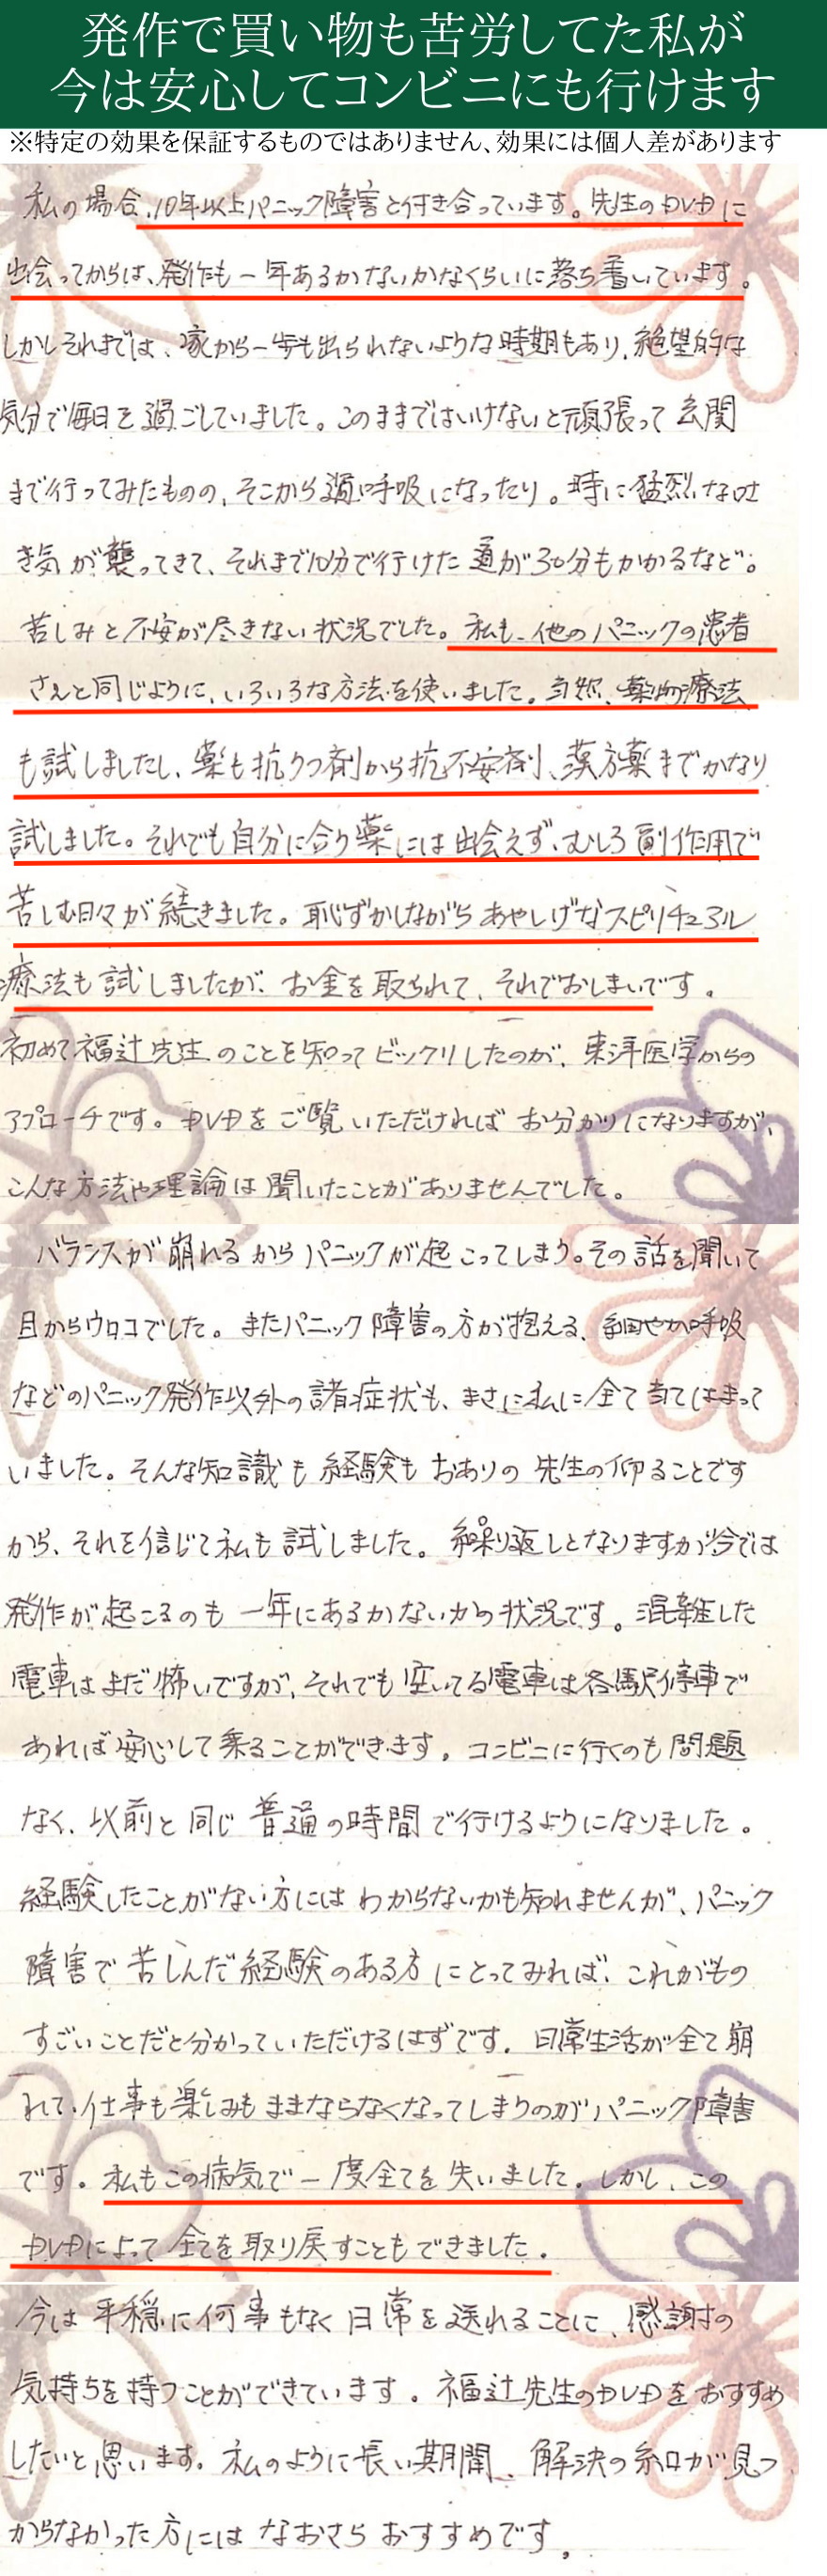 発作で買い物も苦労してた私が
今は安心してコンビニにも行けます
※特定の効果を保証するものではありません、効果には個人差があります
私の場合、10年以上パニック障害と付き合っています。先生のDVDに
出会ってからは、発作も一年あるかないかなくらいに落ち着いています。
しかしそれまでは、家から一歩も出られないような時期もあり、絶望的な
気分で毎日を過ごしていました。このままではいけないと頑張って玄関
まで行ってみたものの、そこから過呼吸になったり。時に猛烈な吐
き気が襲ってきて、それまで10分で行けた道が30分もかかるなど。
苦しみと不安が尽きない状況でした。私も、他のパニックの患者
さんと同じように、いろいろな方法を使いました。当然、薬物療法
も試しましたし、薬も抗うつ剤から抗不安剤、漢方薬までかなり
試しました。それでも自分に合う薬には出会えず、むしろ副作用で
苦しむ日々が続きました。恥ずかしながらあやしげなスピリチュアル
療法も試しましたが、お金を取られて、それでおしまいです。
初めて福辻先生のことを知ってビックリしたのが、東洋医学からの
アプローチです。DVDをご覧いただければお分かりになりますが、
こんな方法や理論は聞いたことがありませんでした。
バランスが崩れるからパニックが起こってしまう。その話を聞いて
目からウロコでした。またパニック障害の方が抱える、動悸や過呼吸
などのパニック発作以外の諸症状も、まさに私に全て当てはまって
いました。そんな知識も経験もおありの先生の仰ることです
から、それを信じて私も試しました。繰り返しとなりますが今では
発作が起こるのも一年にあるかないかの状況です。混雑した
電車はまだ怖いですが、それでも空いてる電車は各駅停車で
あれば安心して乗ることができます。コンビニに行くのも問題
なく、以前と同じ普通の時間で行けるようになりました。
経験したことがない方にはわからないかも知れませんが、パニック
障害で苦しんだ経験のある方にとってみれば、これがもの
すごいことだと分かっていただけるはずです。日常生活が全て崩
れて、仕事も楽しみもままならなくなってしまうのがパニック障害
です。私もこの病気で一度全てを失いました。しかし、この
DVDによって全てを取り戻すこともできました。
今は平穏に何事もなく日常を送れることに、感謝の
気持ちを持つことができています。福辻先生のDVDをおすすめ
したいと思います。私のように長い期間、解決の糸口が見つ
からなかった方にはなおさらおすすめです。